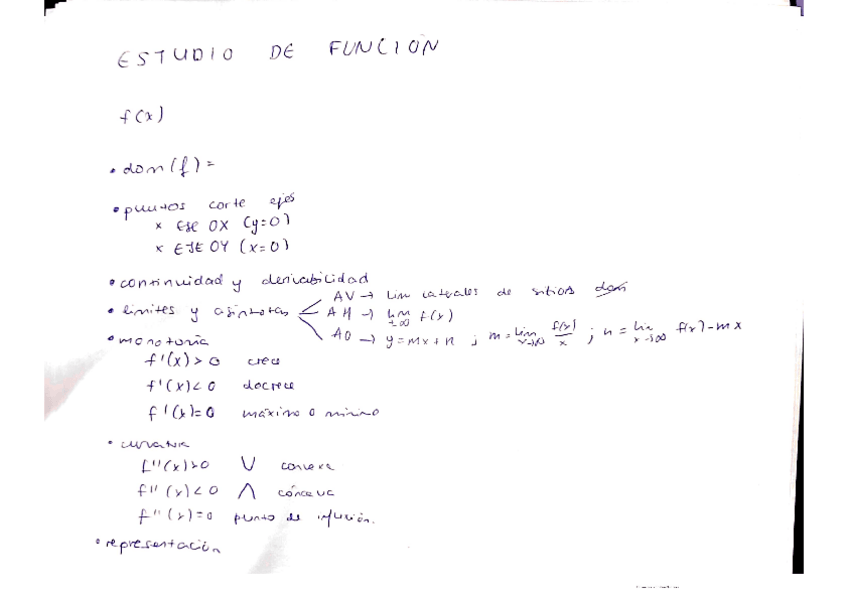 ESTUDIO DE FUNCIÓN
f(x)
• dom(f)=
• puntos corte ejes
× EJE OX (y=0)
× EJE OY (x=0)
• continuidad y derivabilidad
• límites y asíntotas
AV → lim laterales de sitios dom
AH → lim ±∞ f(x)
AO → y=mx+n ; m=lim x→∞ f(x)/x ; n=lim x→∞ f(x)-mx
• monotonía
f'(x)>0 crece
f'(x)<0 decrece
f'(x)=0 máximo o mínimo
• curvatura
f''(x)>0 ∪ convexa
f''(x)<0 ∩ cóncava
f''(x)=0 punto de inflexión.
• representación